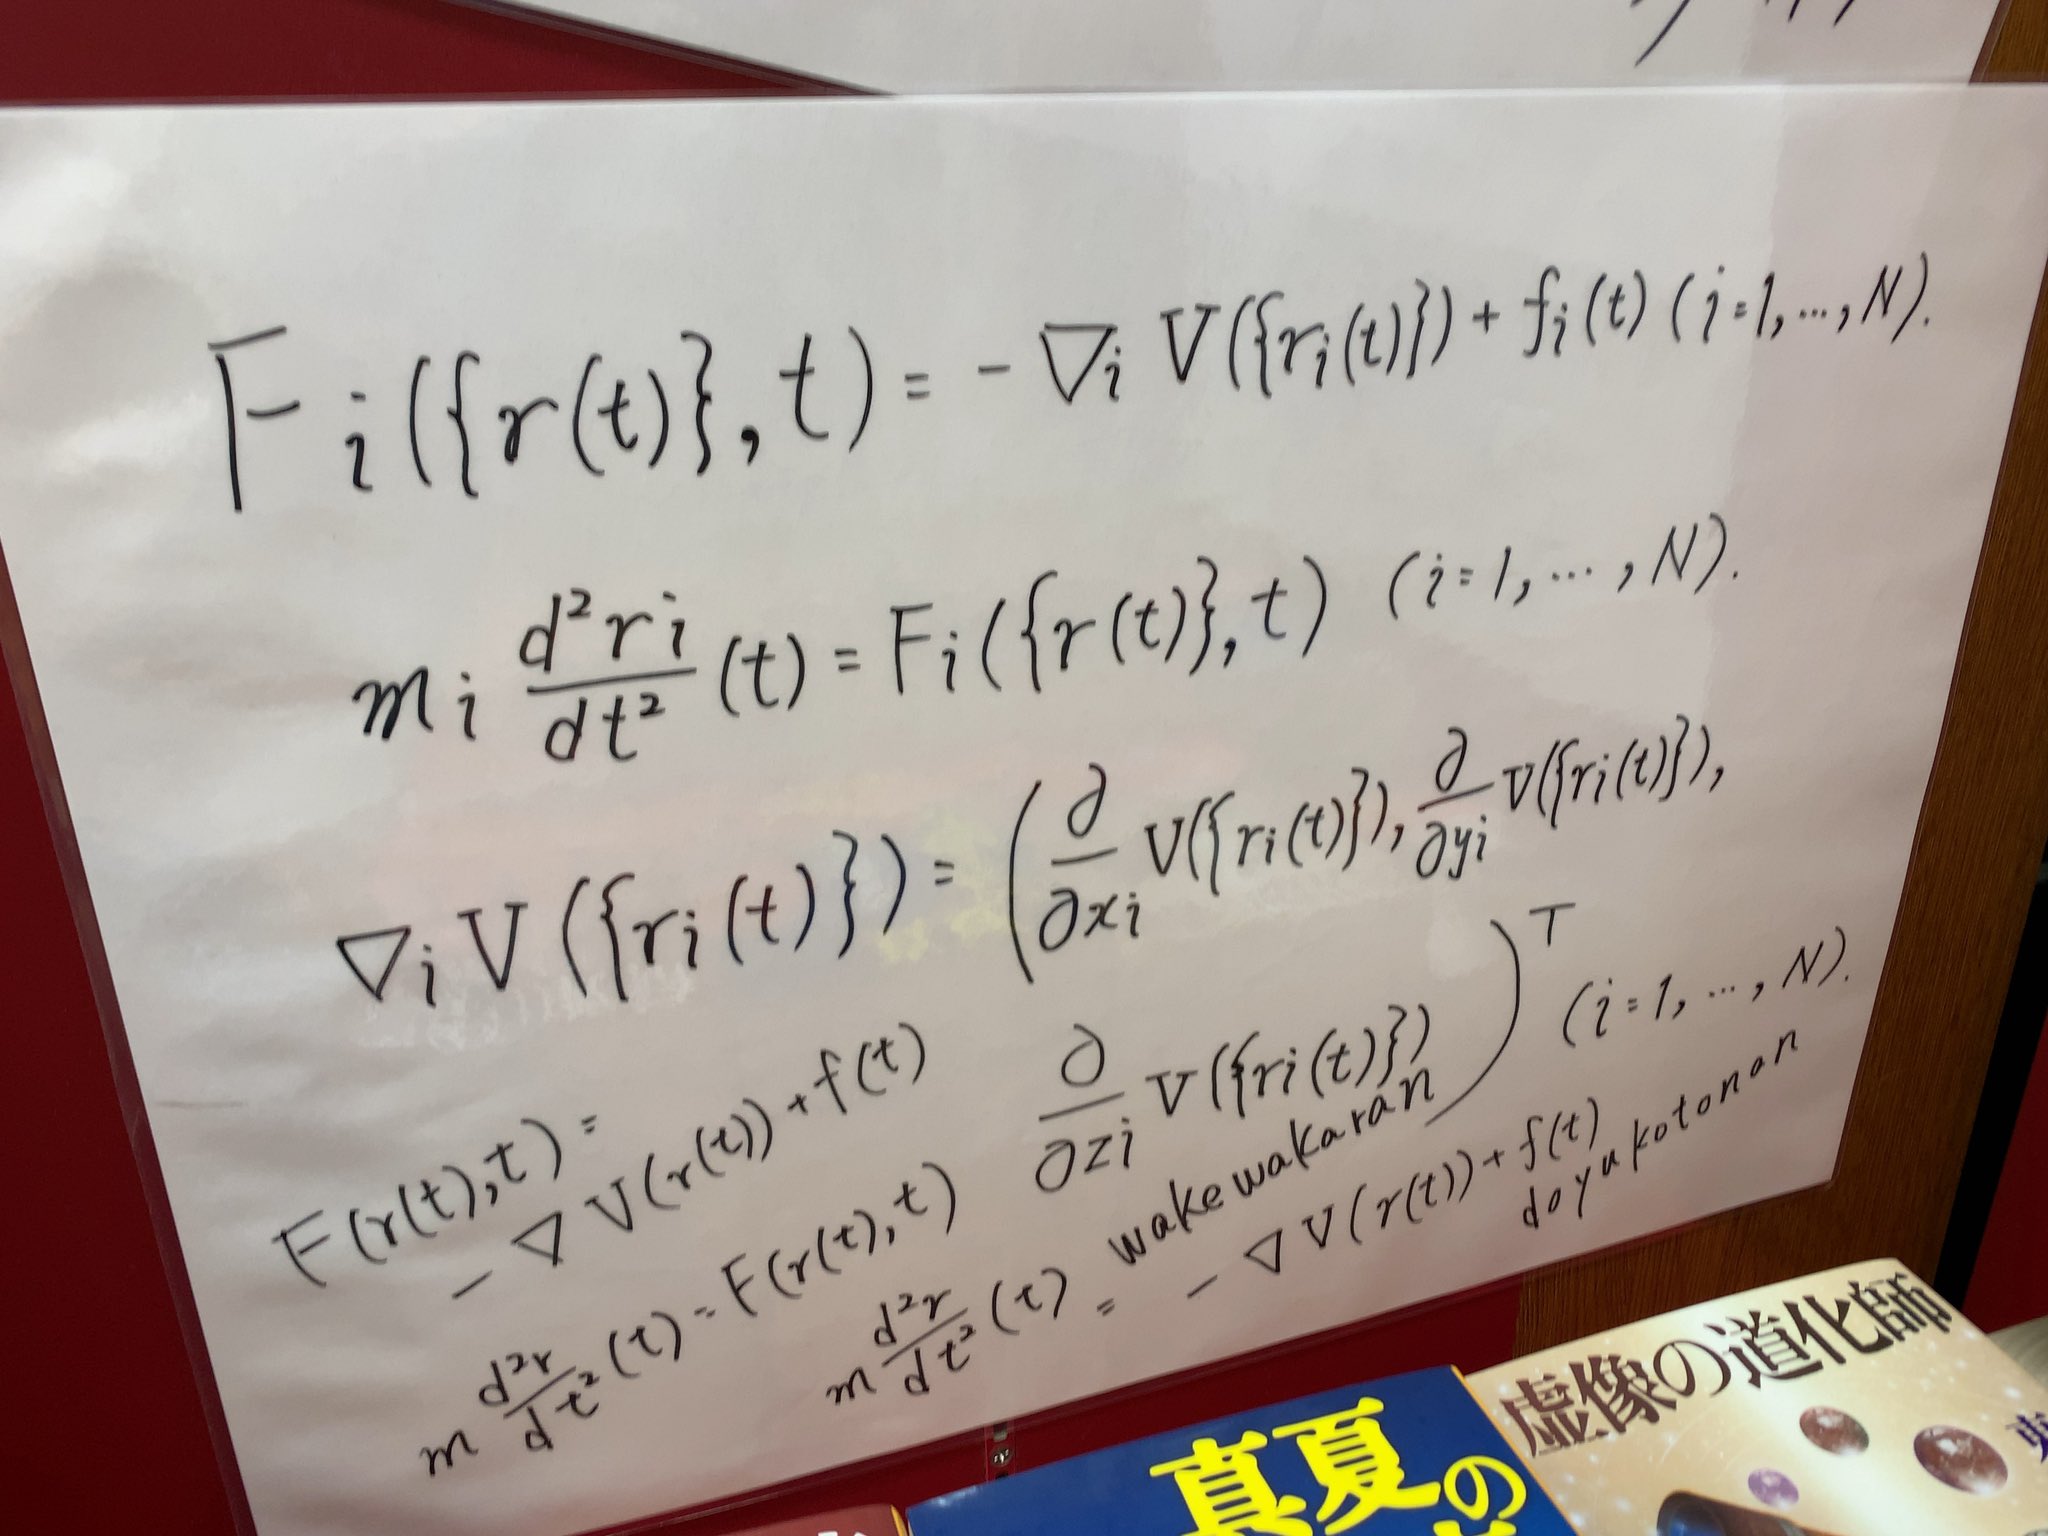 Fi({r(t)},t) = -∇i V({ri(t)}) + fi(t) (i=1,...,N).
mi d²ri/dt² (t) = Fi({r(t)},t) (i=1,...,N).
∇i V({ri(t)}) = (∂/∂xi V({ri(t)}), ∂/∂yi V({ri(t)}),
∂/∂zi V({ri(t)}))ᵀ (i=1,...,N).
F(r(t),t) =
-∇V(r(t)) + f(t)
wakewakaran
m d²r/dt² (t) = F(r(t),t)
m d²r/dt² (t) = -∇V(r(t)) + f(t)
doyukotonan
真夏の
虚像の道化師